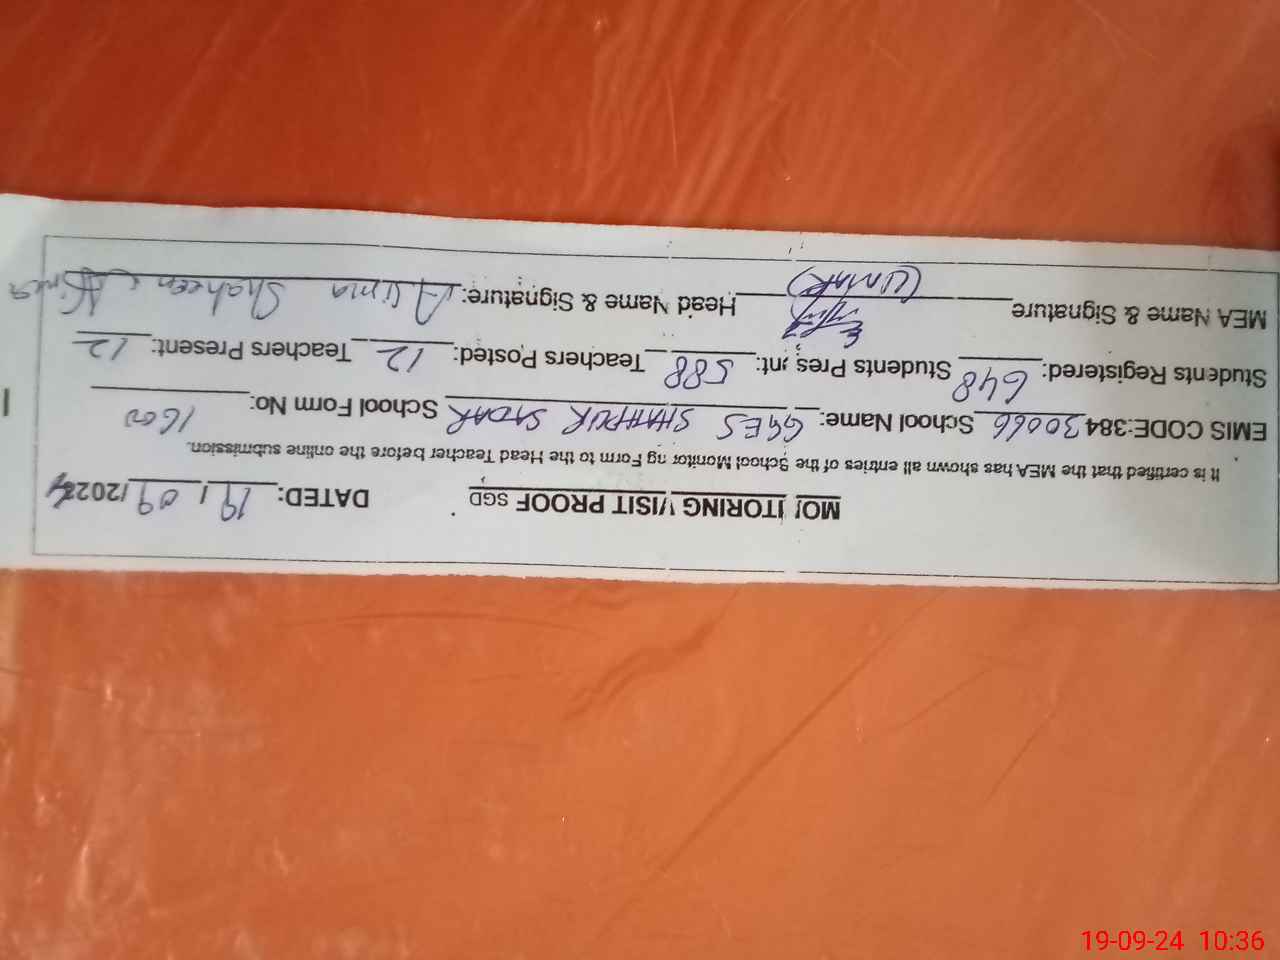 MONITORING VISIT PROOF SGD DATED: 19 / 09 /2024
It is certified that the MEA has shown all entries of the School Monitoring Form to the Head Teacher before the online submission.
EMIS CODE:384 30066 School Name: GGES SHAHPUR SADAR School Form No: 1600
Students Registered: 648 Students Present: 588 Teachers Posted: 12 Teachers Present: 12
MEA Name & Signature (UMAR) Head Name & Signature: Alima Shaheen
19-09-24 10:36